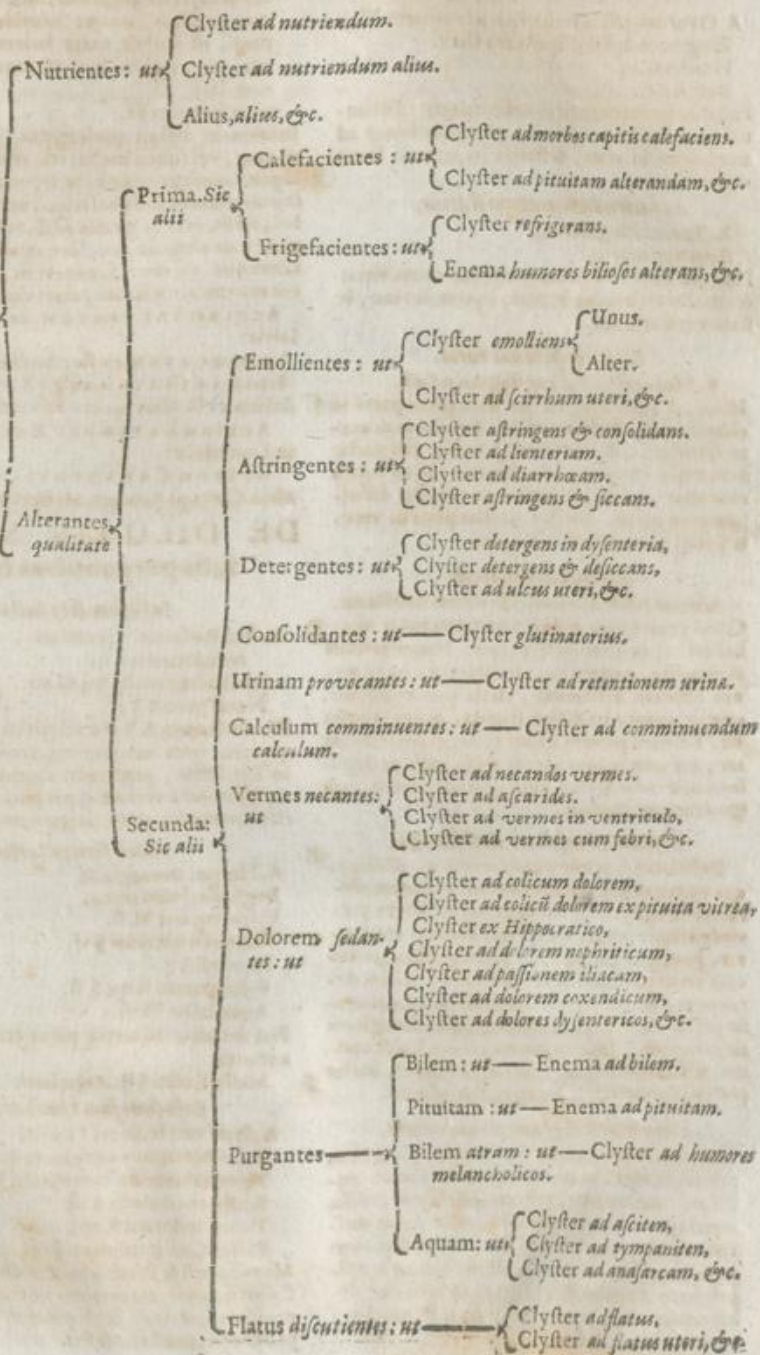 Clyſter ad nutriendum.
Nutrientes: ut
Clyſter ad nutriendum alius.
Alius, alius, &c.
Prima. Sic
alii
Calefacientes : ut
Clyſter ad morbos capitis calefaciens.
Clyſter ad pituitam alterandam, &c.
Frigefacientes: ut
Clyſter refrigerans.
Enema humores bilioſos alterans, &c.
Alterantes
qualitate
Emollientes : ut
Clyſter emolliens
Unus.
Alter.
Clyſter ad ſcirrhum uteri, &c.
Aſtringentes : ut
Clyſter aſtringens & conſolidans.
Clyſter ad lienteriam.
Clyſter ad diarrhœam.
Clyſter aſtringens & ſiccans.
DE DILU
Detergentes: ut
Clyſter detergens in dyſenteria,
Clyſter detergens & deſiccans,
Clyſter ad ulcus uteri, &c.
Conſolidantes : ut — Clyſter glutinatorius.
Urinam provocantes: ut — Clyſter ad retentionem urinæ.
Calculum comminuentes: ut — Clyſter ad comminuendum
calculum.
Secunda:
Sic alii
Vermes necantes:
ut
Clyſter ad necandos vermes.
Clyſter ad aſcarides.
Clyſter ad vermes in ventriculo,
Clyſter ad vermes cum febri, &c.
Dolorem ſedan-
tes: ut
Clyſter ad colicum dolorem,
Clyſter ad colicũ dolorem ex pituita vitrea,
Clyſter ex Hippocratico,
Clyſter ad dolorem nephriticum,
Clyſter ad paſſionem iliacam,
Clyſter ad dolorem coxendicum,
Clyſter ad dolores dyſentericos, &c.
Purgantes
Bilem: ut — Enema ad bilem.
Pituitam : ut — Enema ad pituitam.
Bilem atram : ut — Clyſter ad humores
melancholicos.
Aquam: ut
Clyſter ad aſciten,
Clyſter ad tympaniten,
Clyſter ad anaſarcam, &c.
Flatus diſcutientes: ut
Clyſter ad flatus,
Clyſter ad flatus uteri, &c.